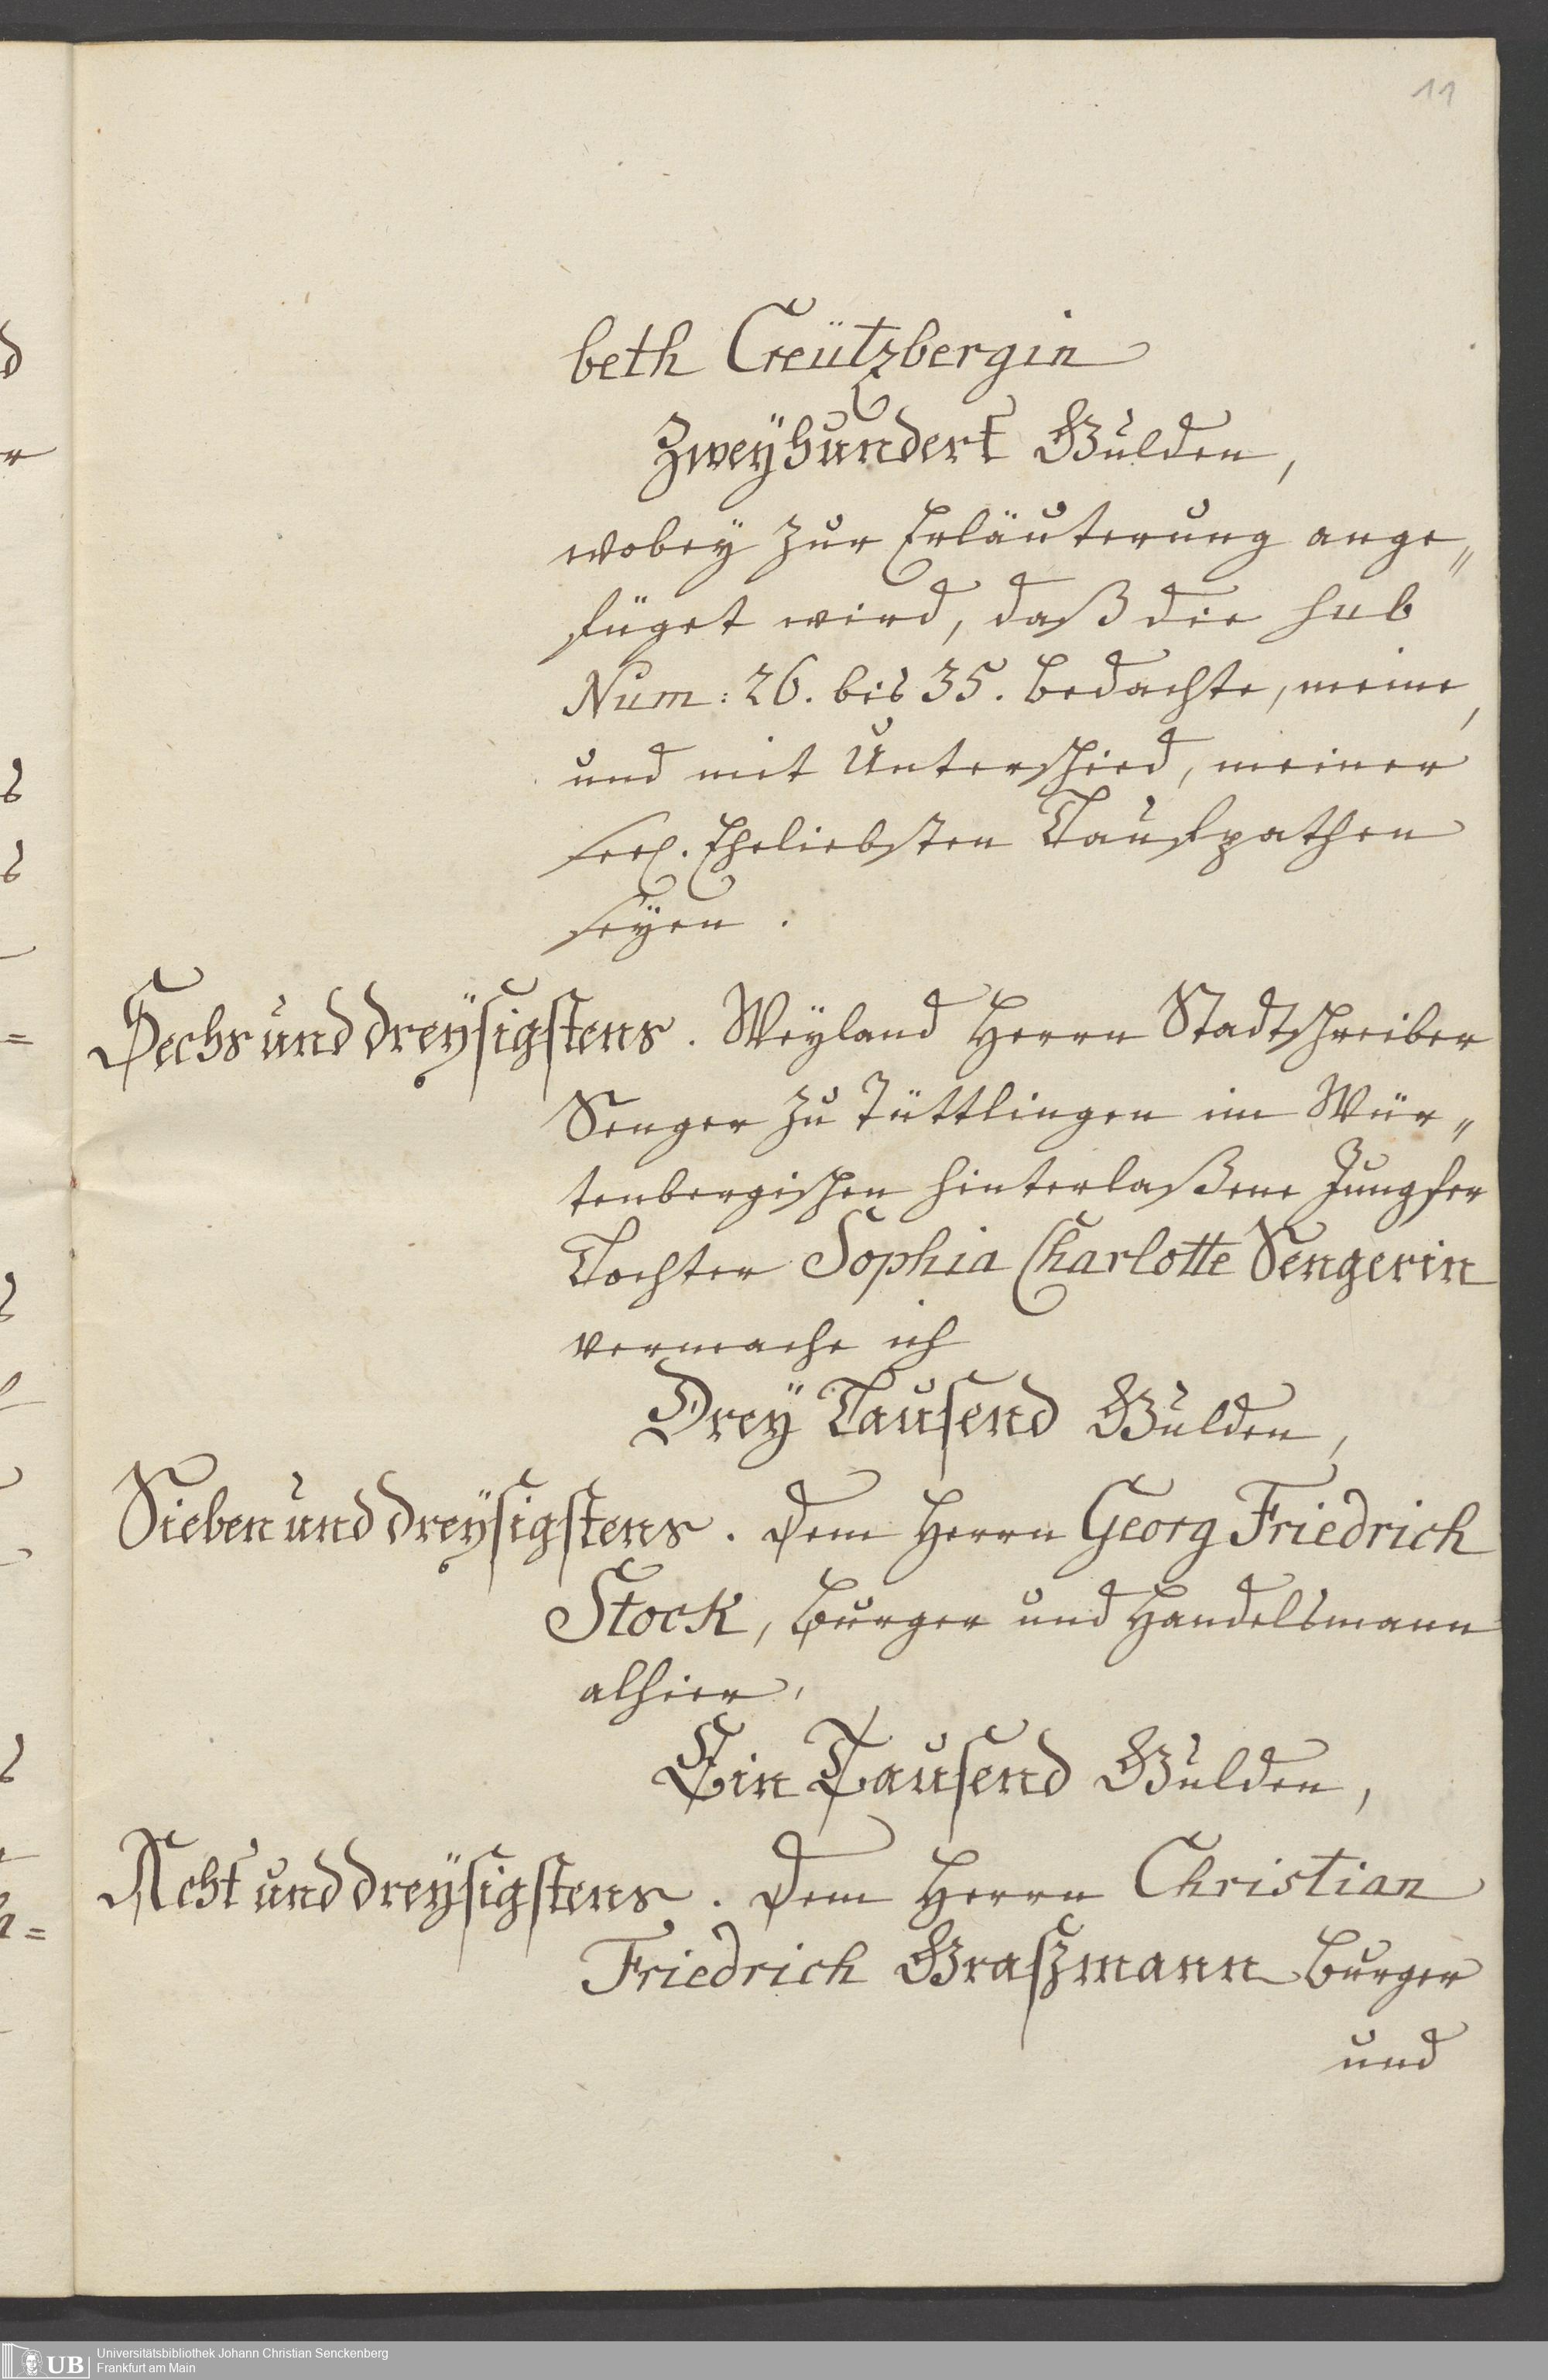 11
beth Creützbergin
Zweÿhundert Gulden,
wobeÿ zur Erläuterung ange„
füget wird, daß die sub
Num: 26. bis 35. bedachte, meine,
und mit Unterschied, meiner
seel. Eheliebsten Taufpathen
seÿen.
Sechs und dreÿsigstens. Weyland Herrn Stadtschreiber
Senger zu Tüttlingen im Wür„
tenbergischen hinterlaßene Jungfer
Tochter Sophia Charlotte Sengerin
vermache ich
Dreÿ Tausend Gulden,
Sieben und dreÿsigstens. Dem Herrn Georg Friedrich
Stock, Burger und Handelsmann
alhier,
Ein Tausend Gulden,
Acht und dreÿsigstens. Dem Herrn Christian
Friedrich Graßmann Burger
und
UB
Universitätsbibliothek Johann Christian Senckenberg
Frankfurt am Main